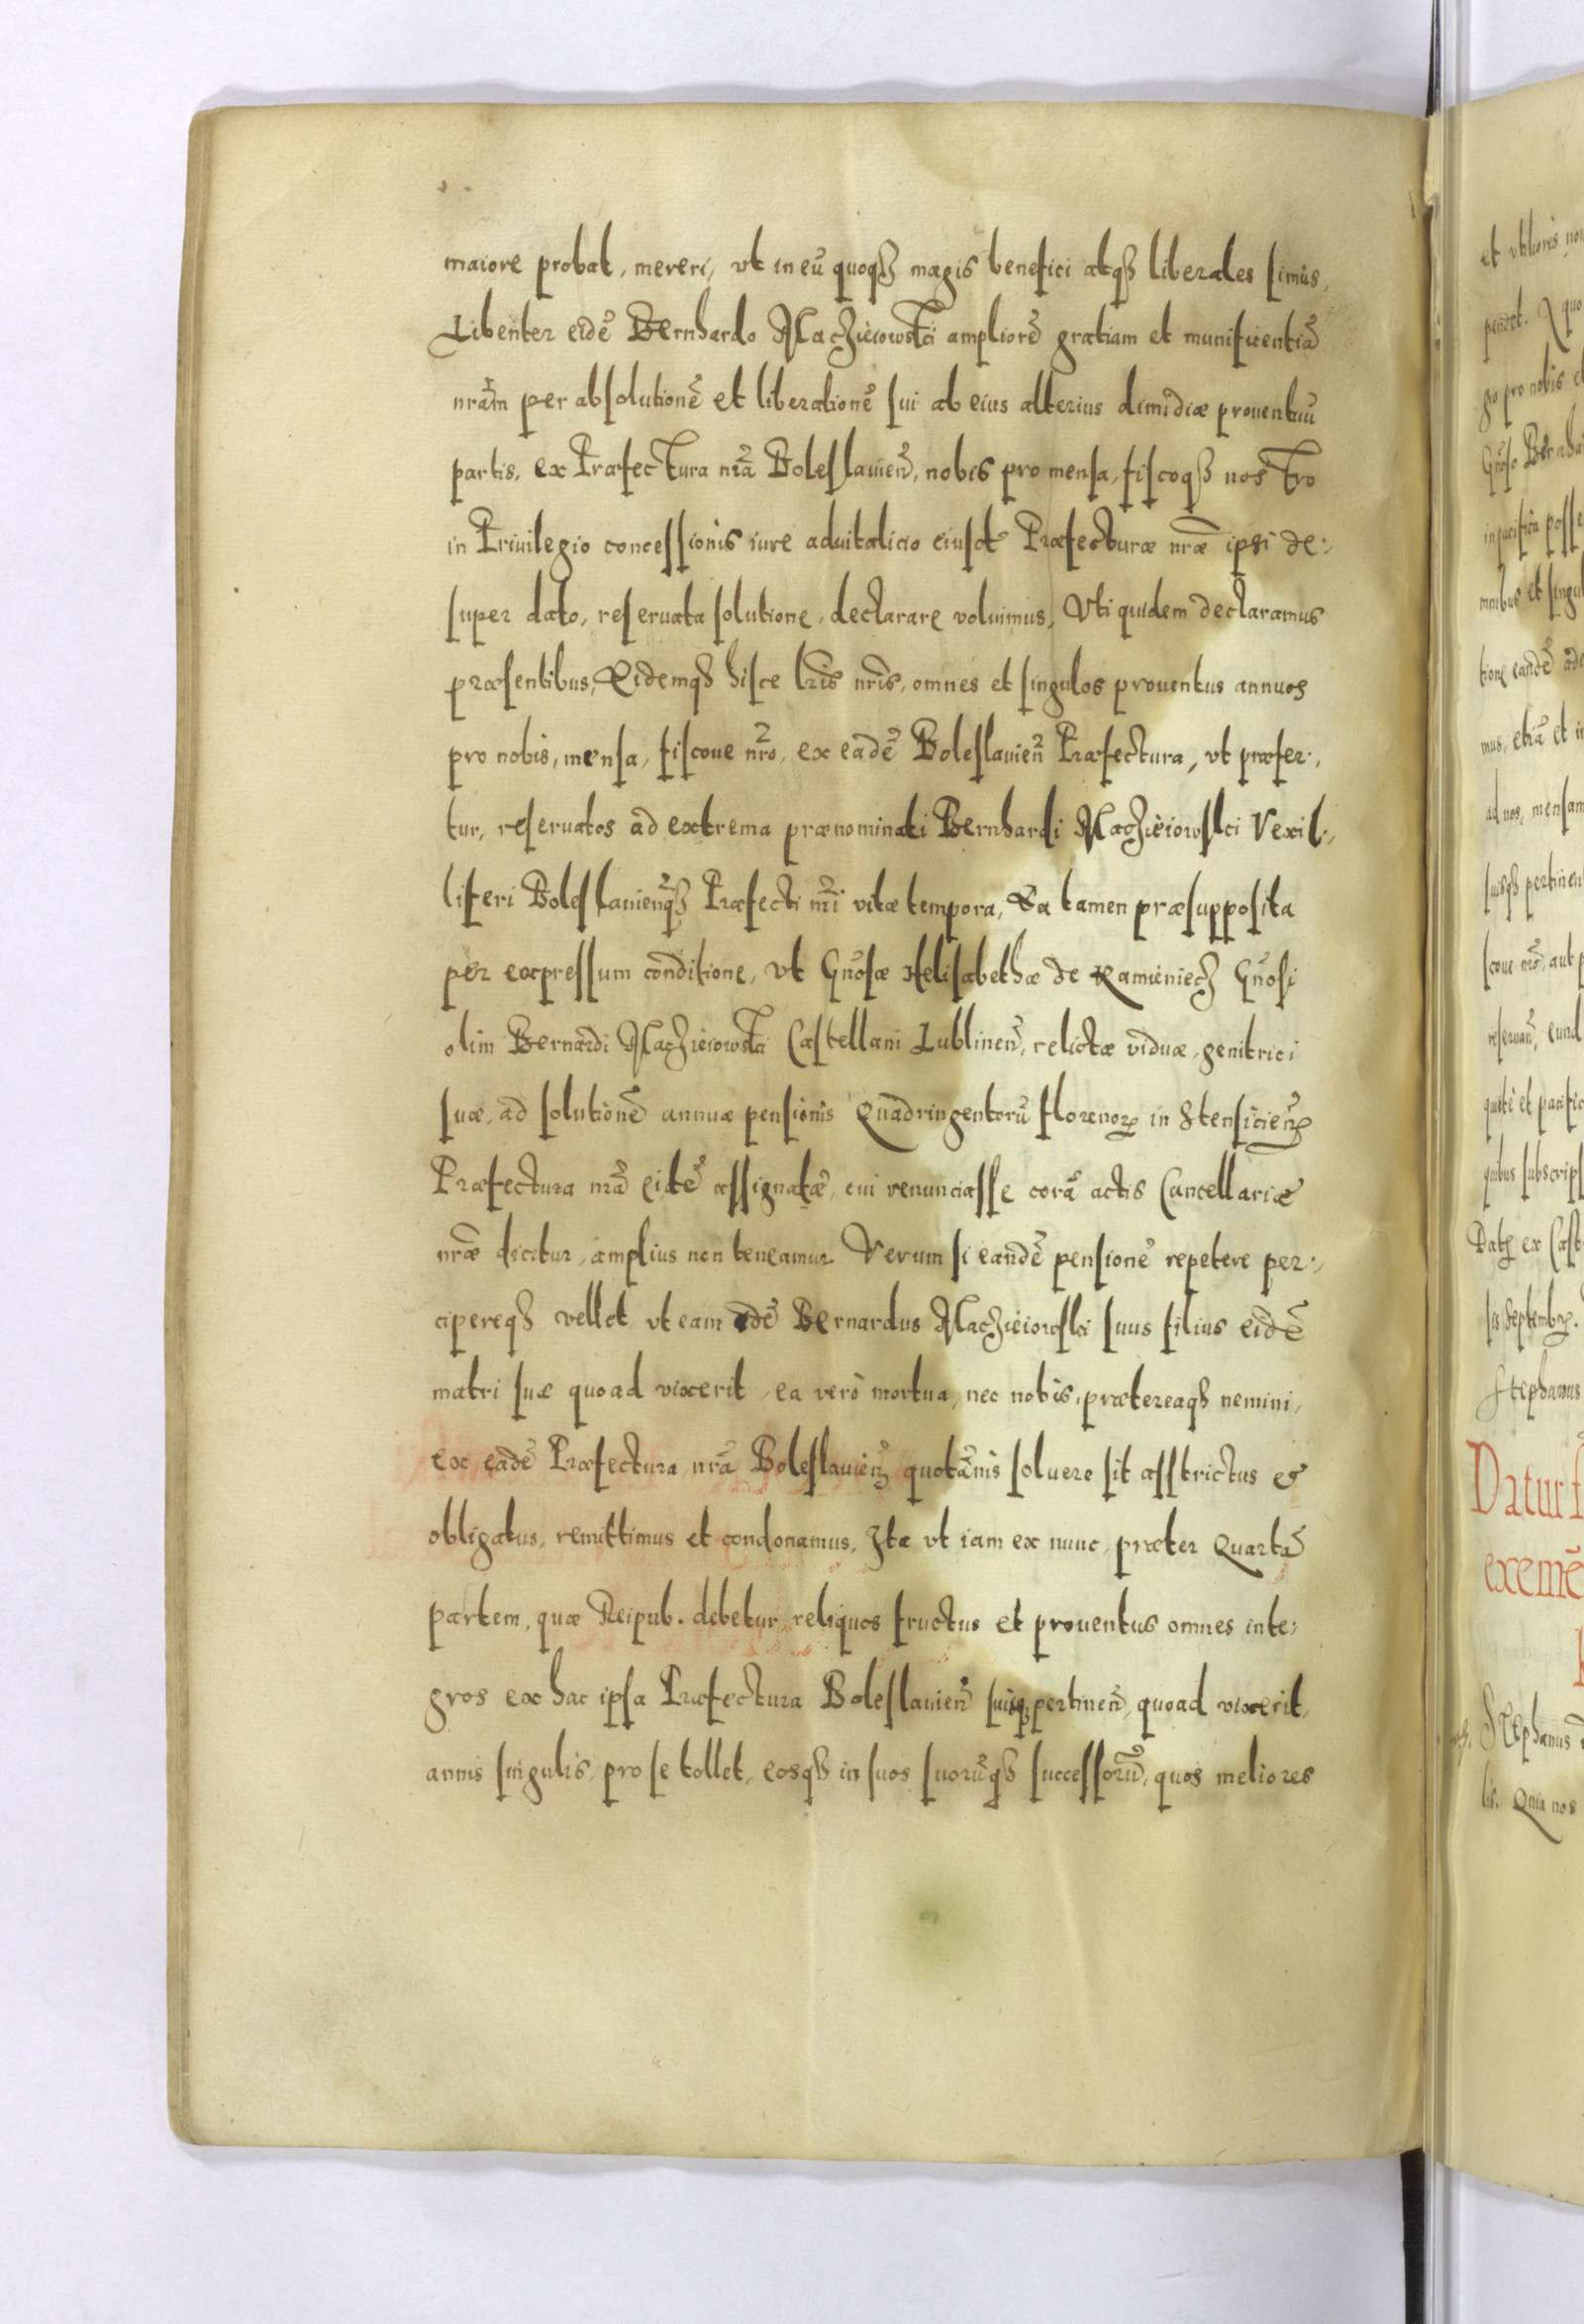 maiore probat, mereri, vt in eũ quoqȝ magis benefici atqȝ liberales simus,
Libenter eidẽ Bernhardo Maczieiowski ampliorẽ gratiam et munificentiã
nrãm per absolutionẽ et liberationẽ sui ab eius alterius dimidiæ prouentuũ
partis, ex Præfectura nrã Boleslauieñ, nobis pro mensa, fiscoqȝ nostro
in Priuilegio concessionis iure aduitalicio eiusd̃ Præfecturæ nræ̃ ipsi de:,
super dato, reseruata solutione, declarare voluimus, Vti quidem declaramus
præsentibus, Eidemqȝ hisce lr̃is nr̃is, omnes et singulos prouentus annuos
pro nobis, mensa, fiscoue nrõ, ex eadẽ Boleslauieñ Præfectura, vt præfer:,
tur, reseruatos ad extrema prænominati Bernhardi Maczieiowski Vexil:,
liferi Boleslauieñqȝ Præfecti nrĩ vitæ tempora, Ea tamen præsupposita
per expressum conditione, vt Gñosæ Helisabethæ de Kamieniecz Gñosi
olim Bernardi Maczieiowski Castellani Lublineñ, relictæ viduæ, genitrici
suæ, ad solutionẽ annuæ pensionis Quadringentorũ florenorꝝ in Stensicieñ
Præfectura nrã eidẽ assignatæ, cui renunciasse corã actis Cancellariæ
nræ̃ dicitur, amplius non teneamur. Verum si eandẽ pensionẽ repetere per:,
cipereqȝ vellet, vt eam idẽ Bernardus Maczieiowski suus filius eidẽ
matri suæ quoad vixerit, ea verò mortua, nec nobis, prætereaqȝ nemini,
ex eadẽ Præfectura nrã Boleslauieñ quotãnis soluere sit asstrictus et
obligatus, remittimus et condonamus, Ita vt iam ex nunc, præter Quartã
partem, quæ Reipub. debetur, reliquos fructus et prouentus omnes inte,
gros ex hac ipsa Præfectura Boleslauieñ suisqȝ pertineñ, quoad vixerit,
annis singulis, pro se tollet, eosqȝ in suos suorũqȝ successorũ, quos meliores
et vtilioris
pendet.
pro nobis
Gñoso
mnibus et singul
tione eandẽ
mus, etiã et
ad nos, mensam
suisqȝ pertinen
scoue nrõ, aut
reseruañ, eund
quietè et pacific
quibus subscrips
Datꝫ ex Cast
Septembꝝ.
Stephanus
Datur
exemẽ
Stephanus
lis. Quia nos